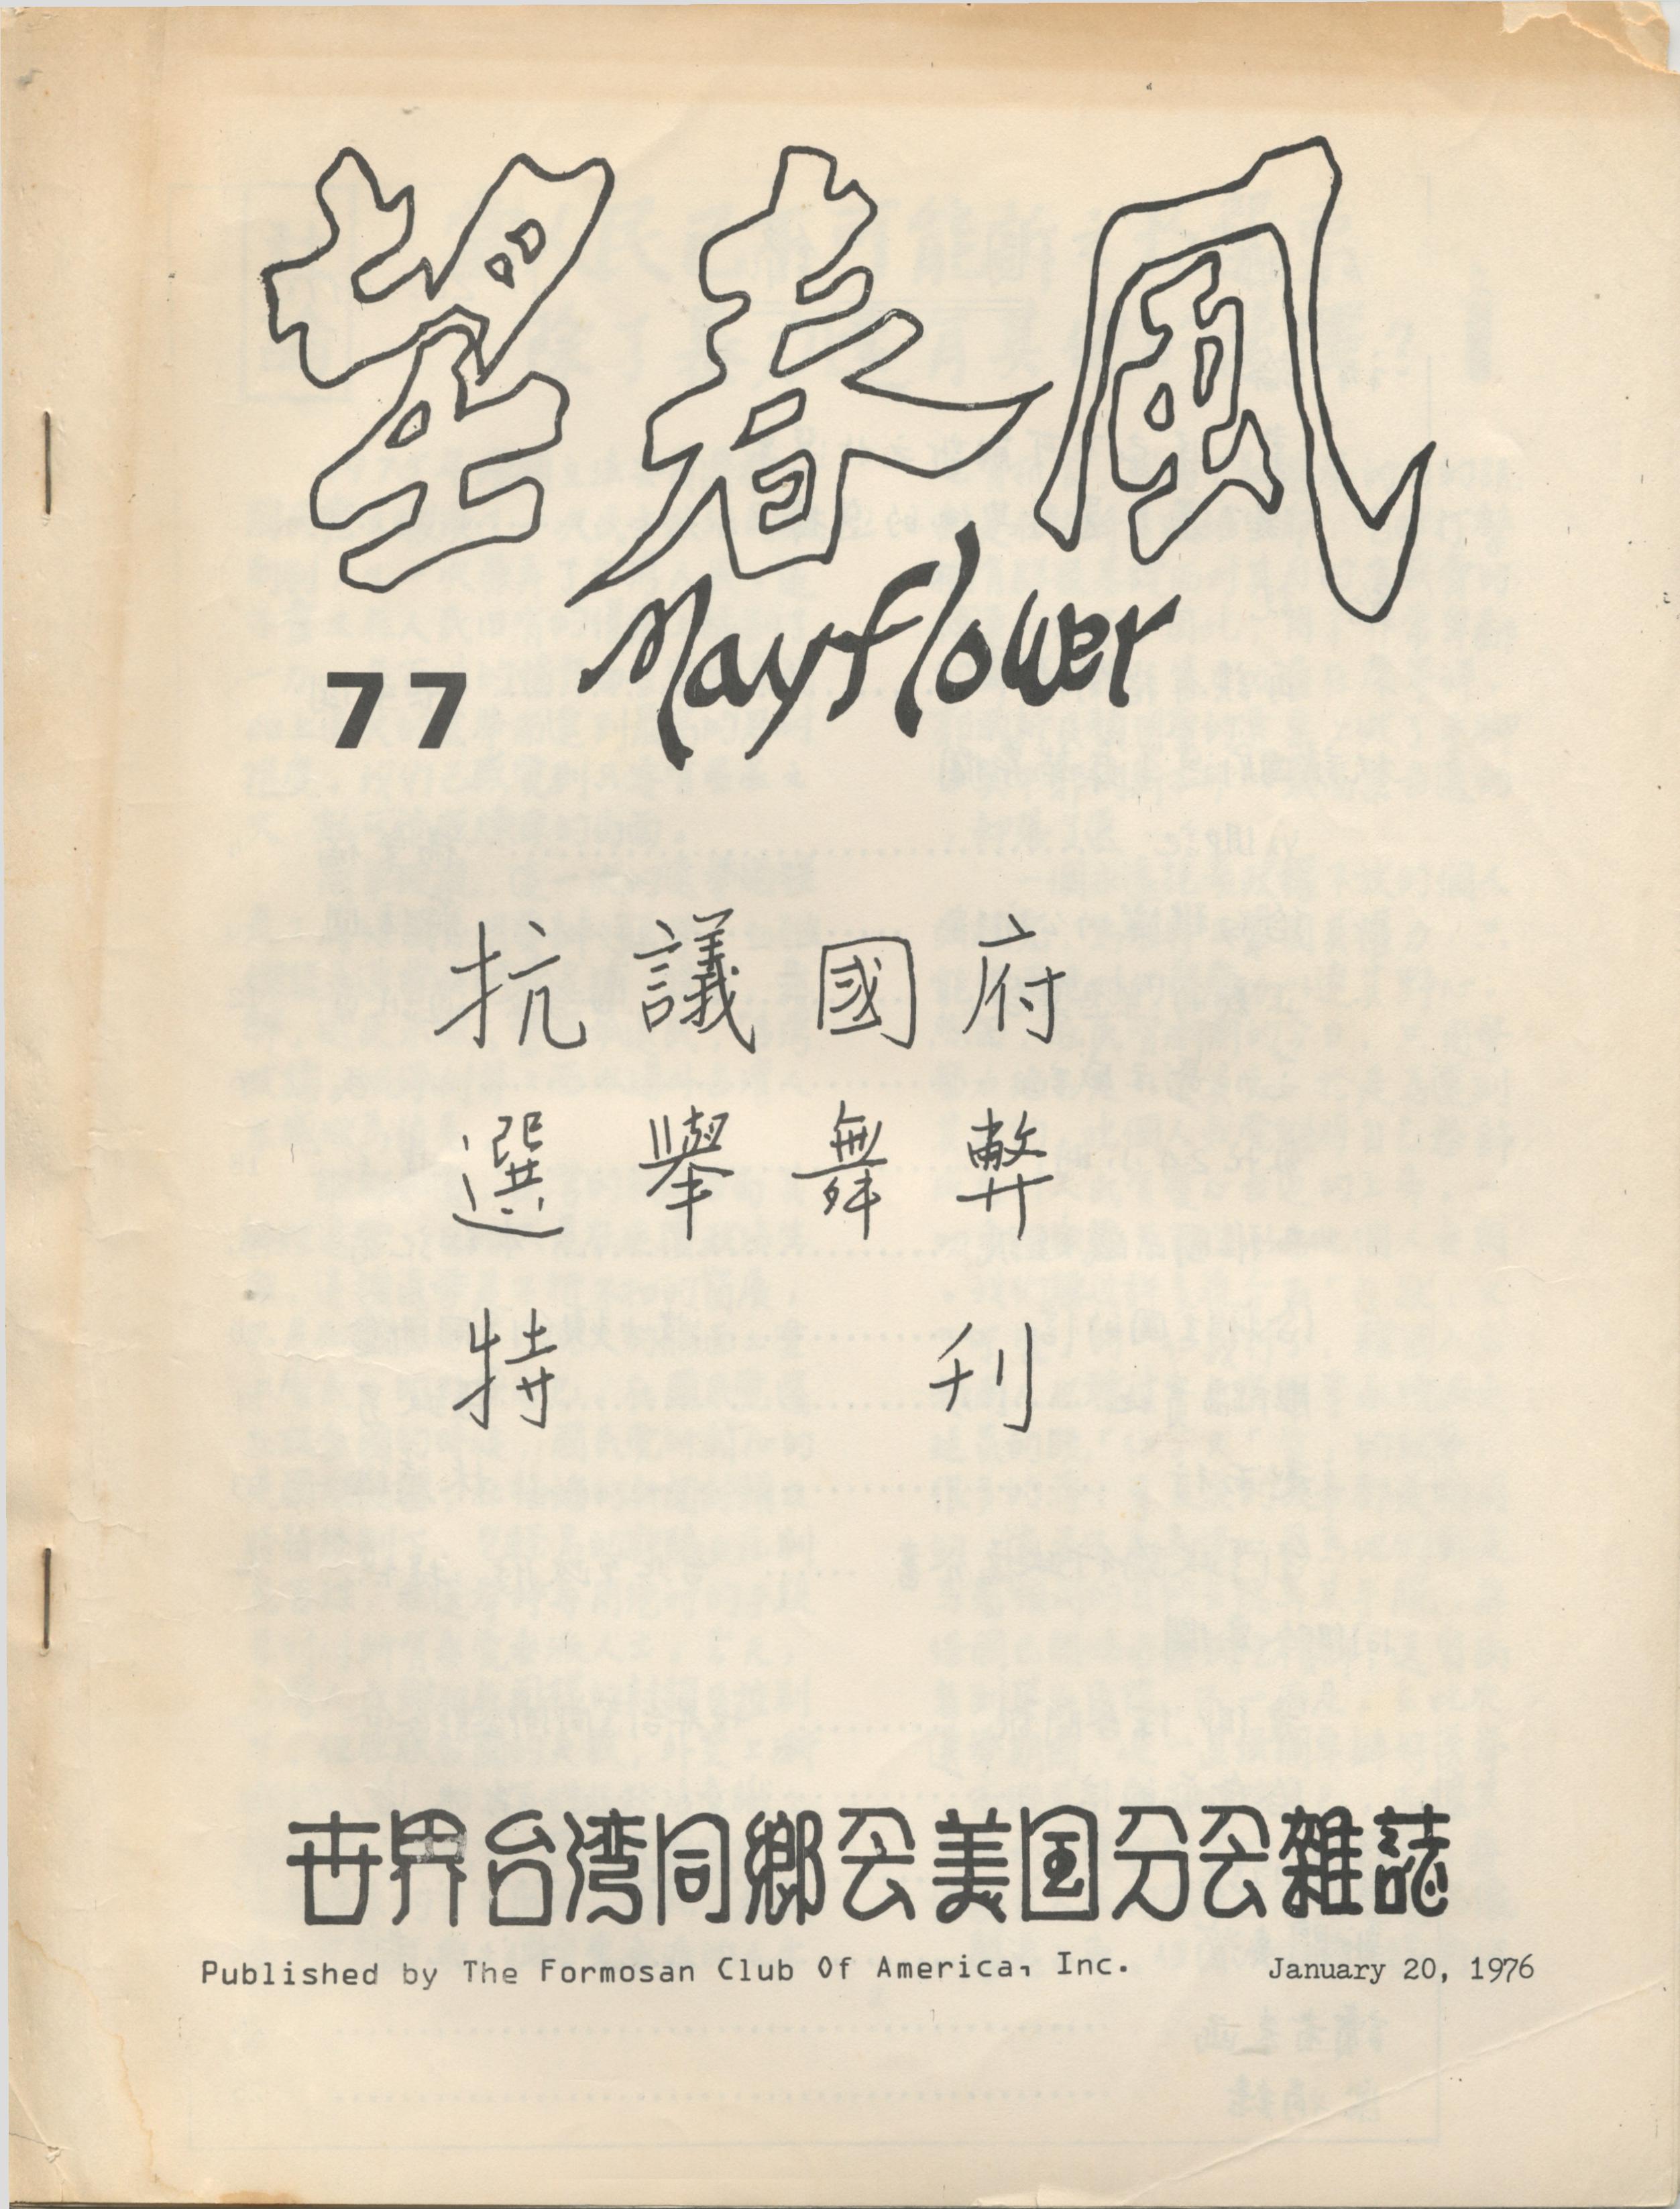 望春風
Mayflower
77
抗議國府
選舉舞弊
特刊
世界台湾同鄉会美国分会雜誌
Published by The Formosan Club Of America, Inc.
January 20, 1976